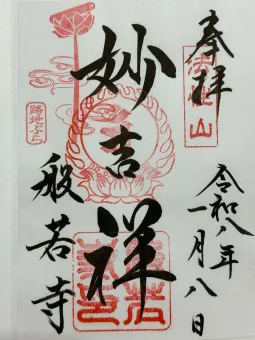 奉拝
令和八年
一月八日
妙吉祥
般若寺
路地ぶら